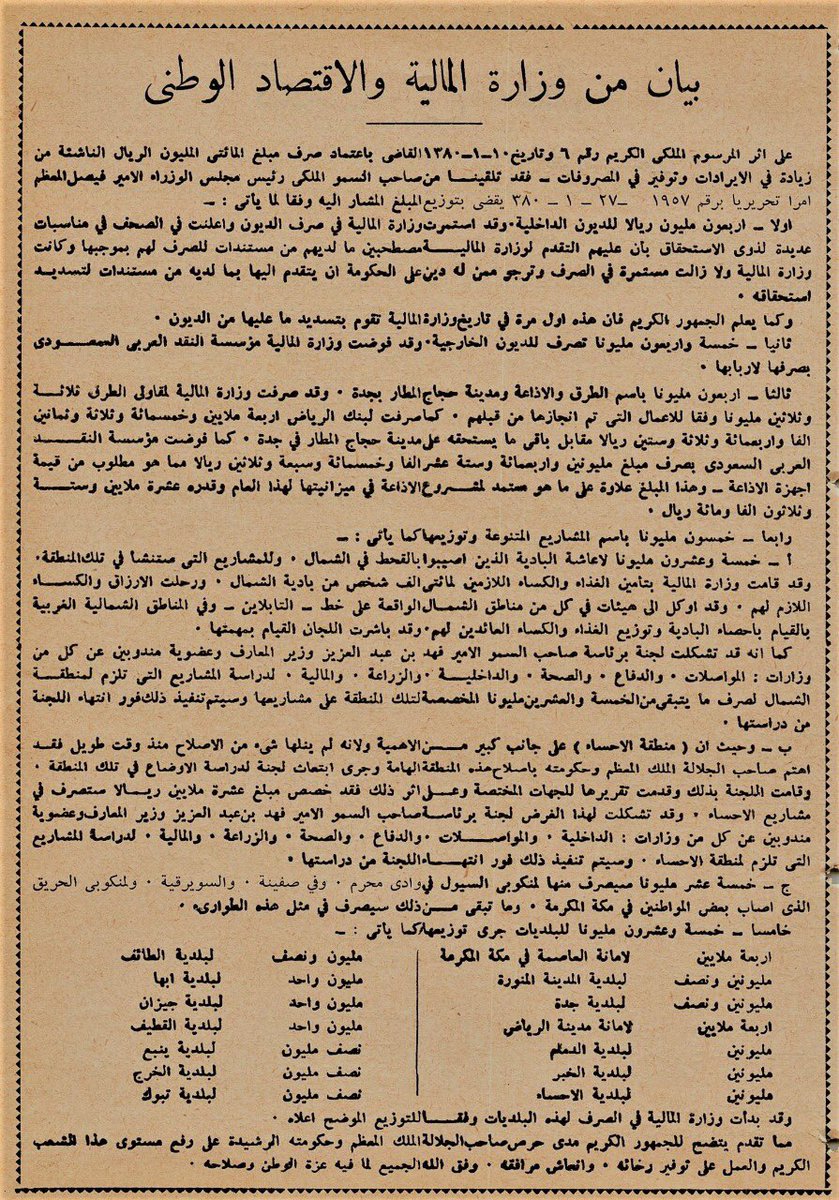 بيان من وزارة المالية والاقتصاد الوطنى
على اثر المرسوم الملكى الكريم رقم ٦ وتاريخ ١٠-١-١٣٨٠ القاضى باعتماد صرف مبلغ المائتى المليون الريال الناشئة من
زيادة في الايرادات وتوفير في المصروفات ــ فقد تلقينا من صاحب السمو الملكى رئيس مجلس الوزراء الامير فيصل المعظم
امرا تحريريا برقم ١٩٥٧ -٢٧ - ١ - ٣٨٠ يقضى بتوزيع المبلغ المشار اليه وفقا لما يأتى : ــ
اولا ــ اربعون مليون ريالا للديون الداخلية ٠ وقد استمرت وزارة المالية في صرف الديون واعلنت في الصحف في مناسبات
عديدة لذوى الاستحقاق بأن عليهم التقدم لوزارة المالية مصطحبين ما لديهم من مستندات للصرف لهم بموجبها وكانت
وزارة المالية ولا زالت مستمرة في الصرف وترجو ممن له دين على الحكومة ان يتقدم اليها بما لديه من مستندات لتسديد
استحقاقه ٠
وكما يعلم الجمهور الكريم فان هذه اول مرة في تاريخ وزارة المالية تقوم بتسديد ما عليها من الديون ٠
ثانيا ــ خمسة واربعون مليونا تصرف للديون الخارجية ٠ وقد فوضت وزارة المالية مؤسسة النقد العربى السعودى
بصرفها لاربابها ٠
ثالثا ــ اربعون مليونا باسم الطرق والاذاعة ومدينة حجاج المطار بجدة ٠ وقد صرفت وزارة المالية لمقاولى الطرق ثلاثة
وثلاثين مليونا وفقا للاعمال التى تم انجازها من قبلهم ٠ كما صرفت لبنك الرياض اربعة ملايين وخمسمائة وثلاثة وثمانين
الفا واربعمائة وثلاثة وستين ريالا مقابل باقى ما يستحقه على مدينة حجاج المطار في جدة ٠ كما فوضت مؤسسة النقد
العربى السعودى بصرف مبلغ مليونين واربعمائة وستة عشر الفا وخمسمائة وسبعة وثلاثين ريالا مما هو مطلوب من قيمة
اجهزة الاذاعة ــ وهذا المبلغ علاوة على ما هو معتمد لمشروع الاذاعة في ميزانيتها لهذا العام وقدره عشرة ملايين وستة
وثلاثون الفا ومائة ريال ٠
رابعا ــ خمسون مليونا باسم المشاريع المتنوعة وتوزيعها كما يأتى : ــ
أ ــ خمسة وعشرون مليونا لاعاشة البادية الذين اصيبوا بالقحط في الشمال ٠ وللمشاريع التى ستنشأ في تلك المنطقة ٠
وقد قامت وزارة المالية بتأمين الغذاء والكساء اللازمين لمائتى الف شخص من بادية الشمال ٠ ورحلت الارزاق والكساء
اللازم لهم ٠ وقد اوكل الى هيئات في كل من مناطق الشمال الواقعة على خط ــ التابلاين ــ وفي المناطق الشمالية الغربية
بالقيام باحصاء البادية وتوزيع الغذاء والكساء العائدين لهم ٠ وقد باشرت اللجان القيام بمهمتها ٠
كما انه قد تشكلت لجنة برئاسة صاحب السمو الامير فهد بن عبد العزيز وزير المعارف وعضوية مندوبين عن كل من
وزارات : المواصلات ٠ والدفاع ٠ والصحة ٠ والداخلية ٠ والزراعة ٠ والمالية ٠ لدراسة المشاريع التى تلزم لمنطقة
الشمال لصرف ما يتبقى من الخمسة والعشرين مليونا المخصصة لتلك المنطقة على مشاريعها وسيتم تنفيذ ذلك فور انتهاء اللجنة
من دراستها ٠
ب ــ وحيث ان ( منطقة الاحساء ) على جانب كبير من الاهمية ولانه لم ينلها شىء من الاصلاح منذ وقت طويل فقد
اهتم صاحب الجلالة الملك المعظم وحكومته باصلاح هذه المنطقة الهامة وجرى ابتعاث لجنة لدراسة الاوضاع في تلك المنطقة ٠
وقامت اللجنة بذلك وقدمت تقريرها للجهات المختصة وعلى اثر ذلك فقد خصص مبلغ عشرة ملايين ريالا ستصرف في
مشاريع الاحساء ٠ وقد تشكلت لهذا الغرض لجنة برئاسة صاحب السمو الامير فهد بن عبد العزيز وزير المعارف وعضوية
مندوبين عن كل من وزارات : الداخلية ٠ والمواصلات ٠ والدفاع ٠ والصحة ٠ والزراعة ٠ والمالية ٠ لدراسة المشاريع
التى تلزم لمنطقة الاحساء ٠ وسيتم تنفيذ ذلك فور انتهاء اللجنة من دراستها ٠
ج ــ خمسة عشر مليونا سيصرف منها لمنكوبى السيول في وادى محرم ٠ وفي صفينة ٠ والسويرقية ٠ ولمنكوبى الحريق
الذى اصاب بعض المواطنين في مكة المكرمة ٠ وما تبقى من ذلك سيصرف في مثل هذه الطوارىء ٠
خامسا ــ خمسة وعشرون مليونا للبلديات جرى توزيعها كما يأتى : ــ
اربعة ملايين لامانة العاصمة في مكة المكرمة
مليونين ونصف لبلدية المدينة المنورة
مليونين ونصف لبلدية جدة
اربعة ملايين لامانة مدينة الرياض
مليونين لبلدية الدمام
مليونين لبلدية الخبر
مليونين لبلدية الاحساء
مليون ونصف لبلدية الطائف
مليون واحد لبلدية ابها
مليون واحد لبلدية جيزان
مليون واحد لبلدية القطيف
نصف مليون لبلدية ينبع
نصف مليون لبلدية الخرج
نصف مليون لبلدية تبوك
وقد بدأت وزارة المالية في الصرف لهذه البلديات وفقا للتوزيع الموضح اعلاه ٠
مما تقدم يتضح للجمهور الكريم مدى حرص صاحب الجلالة الملك المعظم وحكومته الرشيدة على رفع مستوى هذا الشعب
الكريم والعمل على توفير رخائه ٠ وانعاش مرافقه ٠ وفق الله الجميع لما فيه عزة الوطن وصلاحه ٠